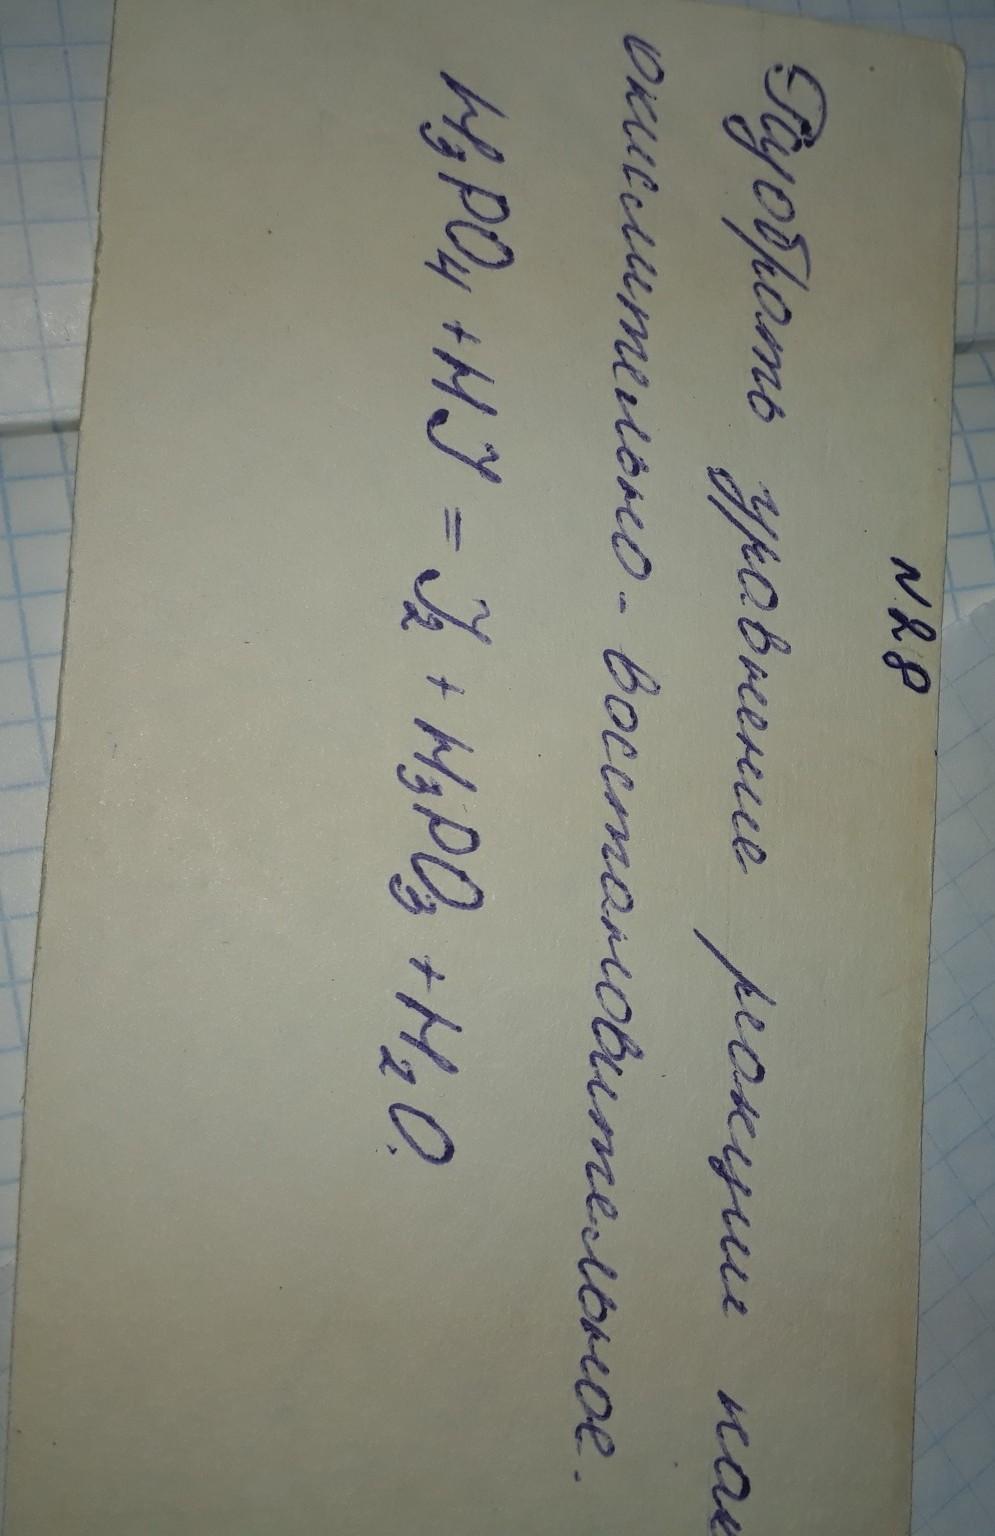 N28
Разобрать уравнение реакции как
окислительно-восстановительное.
H₃PO₄ + HJ = J₂ + H₃PO₃ + H₂O.